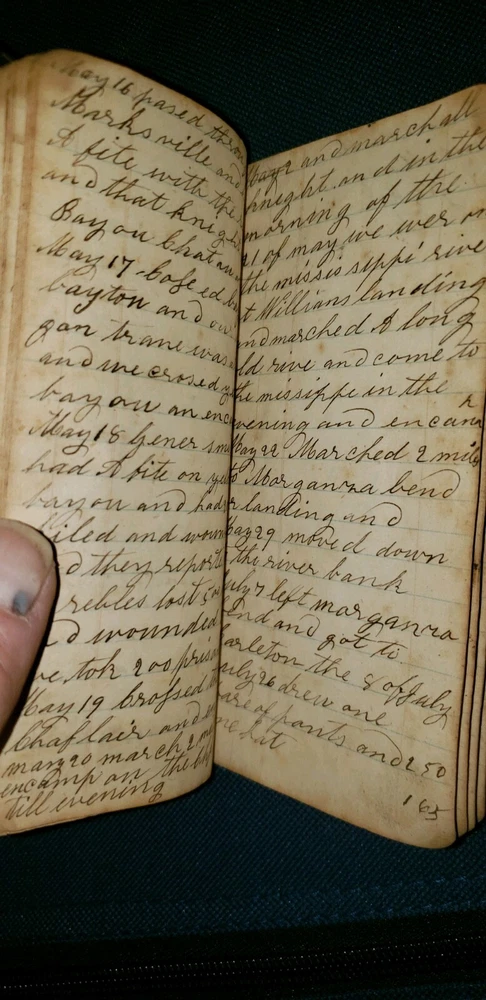 May 16 pased thro
Marksville and
A fite with the
and that knigh
Bayou Chat
May 17
bayton and our
gon trane was
and we crosed
bayou an enc
May 18 Gener sm
had A fite on yel
bayou and had
iled and woun
d they report
rebles lost 50
d wounded
ve tok 200 priso
May 19 crossed
Chaflair and
may 20 march 2 m
encamp on the
till evening
bayo and march all
knight and in the
morning of the
21 of may we wer on
the missis sippi rive
t Willians landing
nd marched A long
ld rive and come to
the missippe in the
vening and encam
May 22 Marched 2 mile
to Morganza bend
r landing and
May 29 moved down
the river bank
uly 7 left morganza
bend and got to
arleton the 8 of July
July 26 drew one
are of pants and 2 50
ne hat
1 65